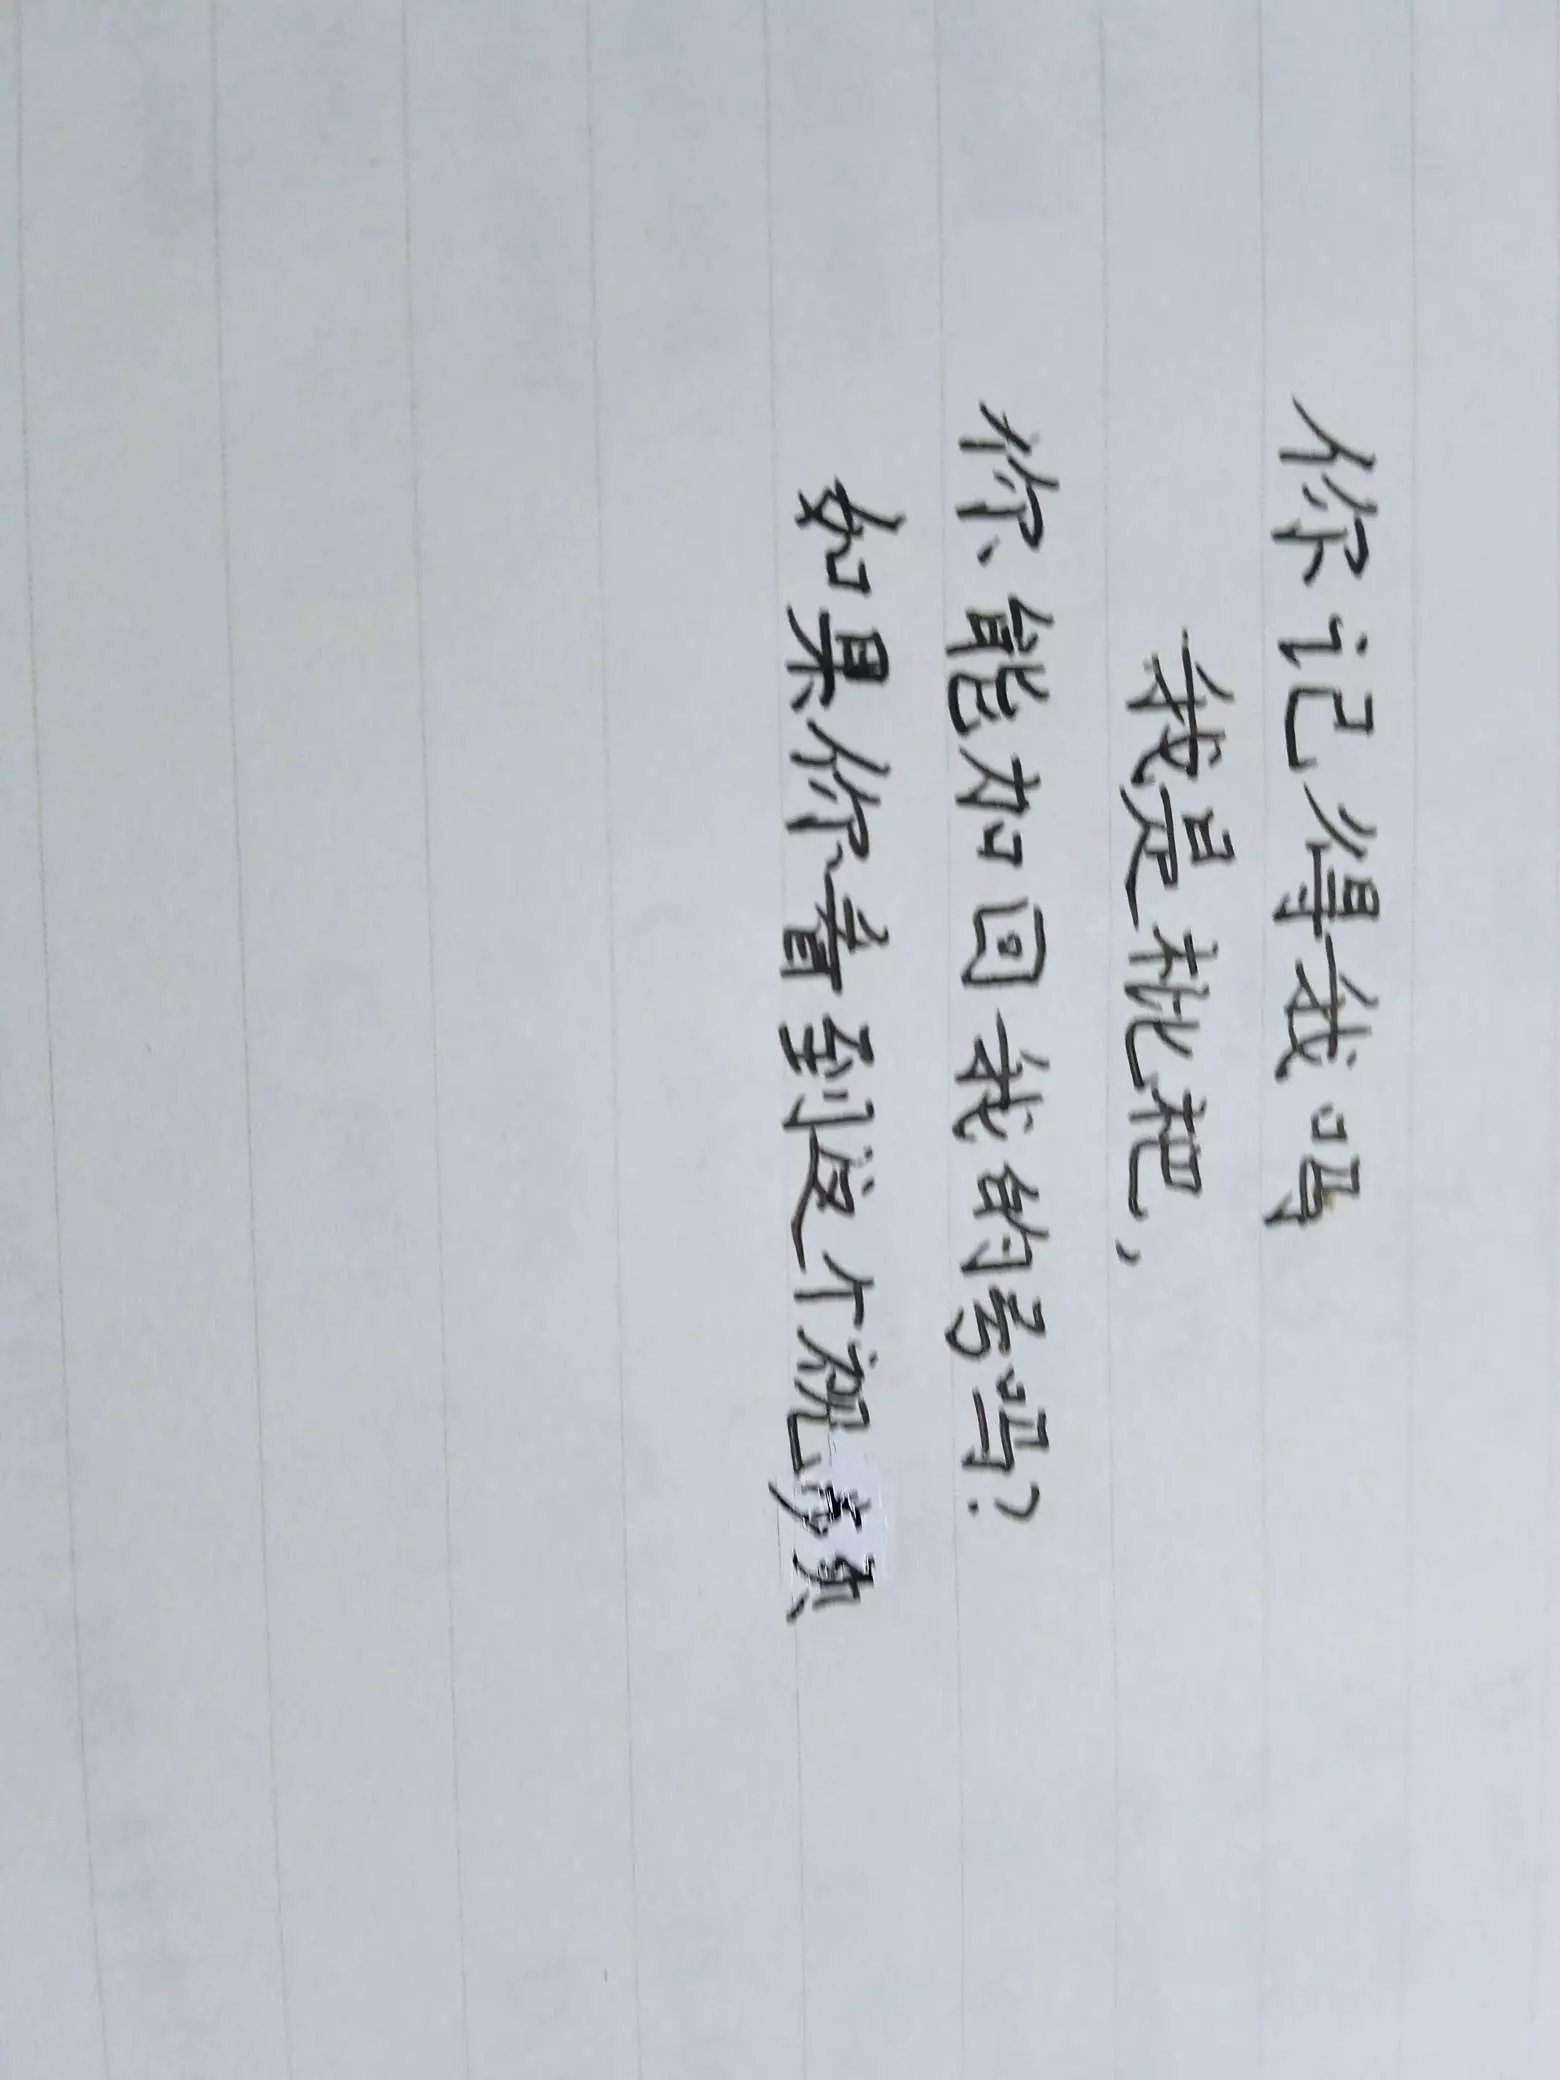 你记得我吗
我是枇杷,
你能加回我的号吗?
如果你看到这个视频